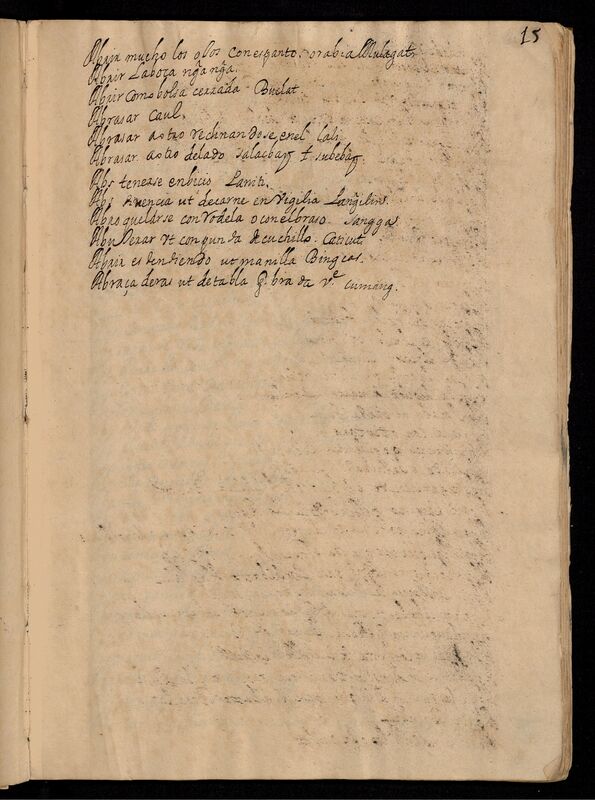 15
Abrir mucho los ojos con espanto. o rabia Mulagat
Abrir La boca nganga.
Abrir Como bolsa cerrada Buclat
Abrasar Caul.
Abrasar a otro rechinandose en el Cali
Abrasar. a otro de lado salacbay t subebay
Abs tenerse en bicio Laniti.
Abs tinencia ut de carne en Vigilia Langilin.
Abro quelarse con rodela o con el braso. sangga
Abu Xerar ut con punta de cuchillo. Caticut
Abrir estendiendo ut manilla Bingcas.
Abraça deras ut de tabla q̃ bra da Vᵉ cumang.